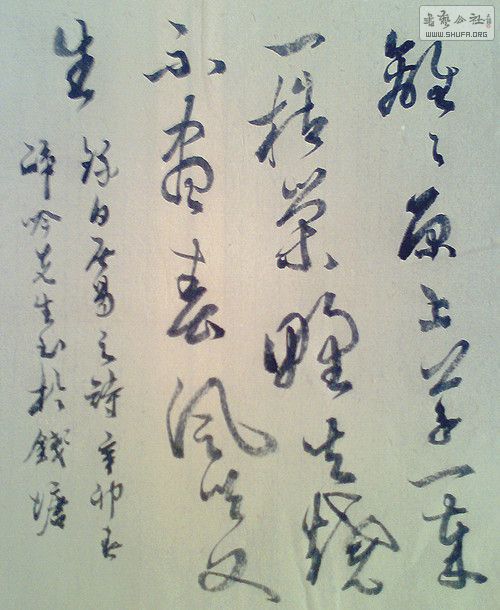 離々原上草一歲
一枯榮野火燒
不盡春風吹又
生
錄白居易之詩辛卯春
醉吟先生書於錢塘
書藝公社
WWW.SHUFA.ORG